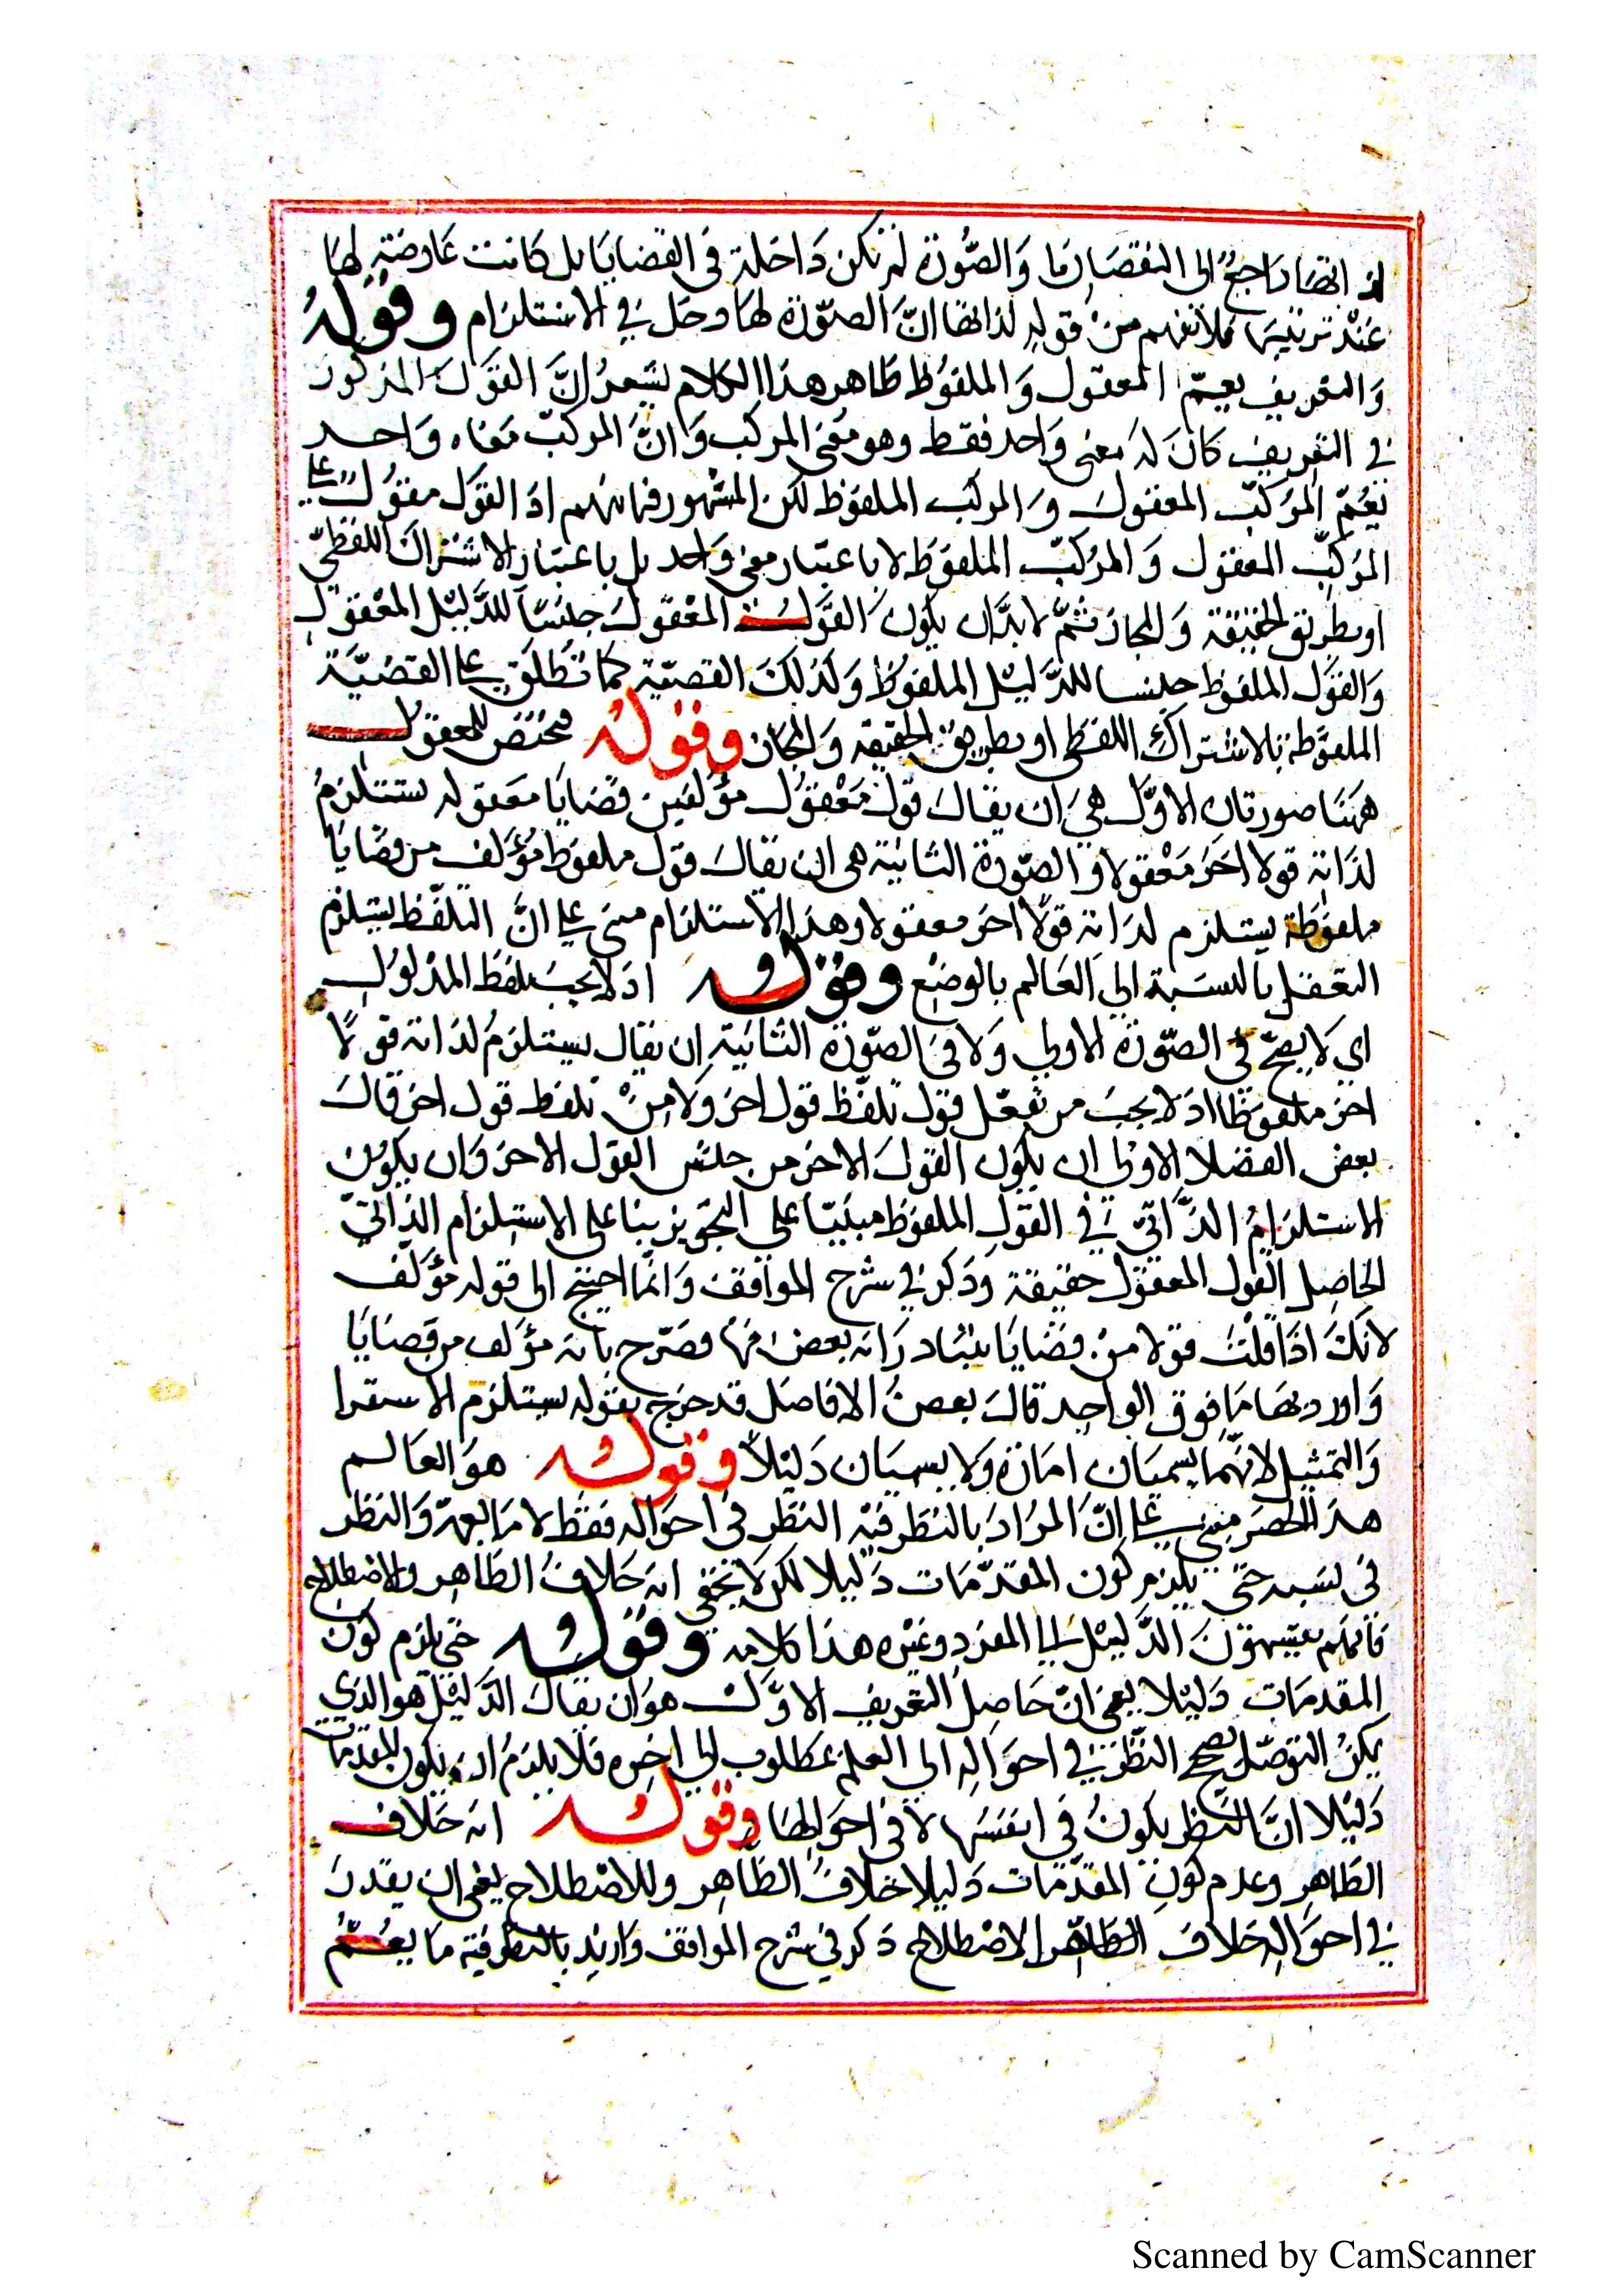 لذاتها راجع الى القضايا والصورة لم تكن داخلة في القضايا بل كانت عارضة لها
عند ترتيبها فلا يفهم من قوله لذاتها ان الصورة لها دخل في الاستلزام وقوله
والتعريف يعم المعقول والملفوظ ظاهر هذا الكلام يشعر ان القول المذكور
في التعريف كان له معنى واحد فقط وهو معنى المركب وان المركب معناه واحد
يعم المركب المعقول والمركب الملفوظ لكن المشهور فيما بينهم اذ القول مقول على
المركب المعقول والمركب الملفوظ لا باعتبار معنى واحد بل باعتبار الاشتراك اللفظي
او بطريق الحقيقة والمجاز ثم لا بد ان يكون القول المعقول جنسا للدليل المعقول
والقول الملفوظ جنسا للدليل الملفوظ وكذلك القضية كما تطلق على القضية
الملفوظة بالاشتراك اللفظي او بطريق الحقيقة والمجاز وقوله مختص للمعقول
ههنا صورتان الاول هي ان يقال قول معقول مؤلف من قضايا معقوله يستلزم
لذاته قولا اخر معقولا والصورة الثانية هي ان يقال قول ملفوظ مؤلف من قضايا
ملفوظة يستلزم لذاته قولا اخر معقولا وهذا الاستلزام مبنى على ان التلفظ يستلزم
التعقل بالنسبة الى العالم بالوضع وقوله اذ لا يجب تلفظ المدلول
اي لا يصح في الصورة الاولى ولا في الصورة الثانية ان يقال يستلزم لذاته قولا
اخر ملفوظا اذ لا يجب من تعقل قول تلفظ قول اخر ولا من تلفظ قول اخر قال
بعض الفضلا الاولى ان يكون القول الاخر من جنس القول الاخر وان يكون
الاستلزام الذاتي في القول الملفوظ مبنيا على التجويز بنا على الاستلزام الذاتي
الحاصل القول المعقول حقيقة وذكر في شرح المواقف وانما احتيج الى قوله مؤلف
لانك اذا قلت قولا من قضايا يتبادر انه بعض منها فصرح بانه مؤلف من قضايا
واورد بها ما فوق الواحد قال بعض الافاضل قد خرج بقوله يستلزم الاستقرا
والتمثيل لانهما يسميان امارة ولا يسميان دليلا وقوله هو العالم
هذا الحصر مبني على ان المراد بالنظر فيه النظر في احواله فقط لا ما يعمه والنظر
في نفسه حتى يلزم كون المقدمات دليلا لكن لا يخفى انه خلاف الظاهر والاصطلاح
فانهم يقسمون الدليل الى المفرد وغيره هذا كلامه وقوله حتى يلزم كون
المقدمات دليلا يعني ان حاصل التعريف الاول هو ان يقال الدليل هو الذي
يمكن التوصل بصحيح النظر في احواله الى العلم بمطلوب الى اخره فلا يلزم ان يكون المقدمات
دليلا ان النظر يكون في انفسها لا في احوالها وقوله انه خلاف
الظاهر وعدم كون المقدمات دليلا خلاف الظاهر وللاصطلاح يعني ان يقدر
في احواله خلاف الظاهر الاصطلاح ذكر في شرح المواقف واريد بالنظر فيه ما يعم
Scanned by CamScanner